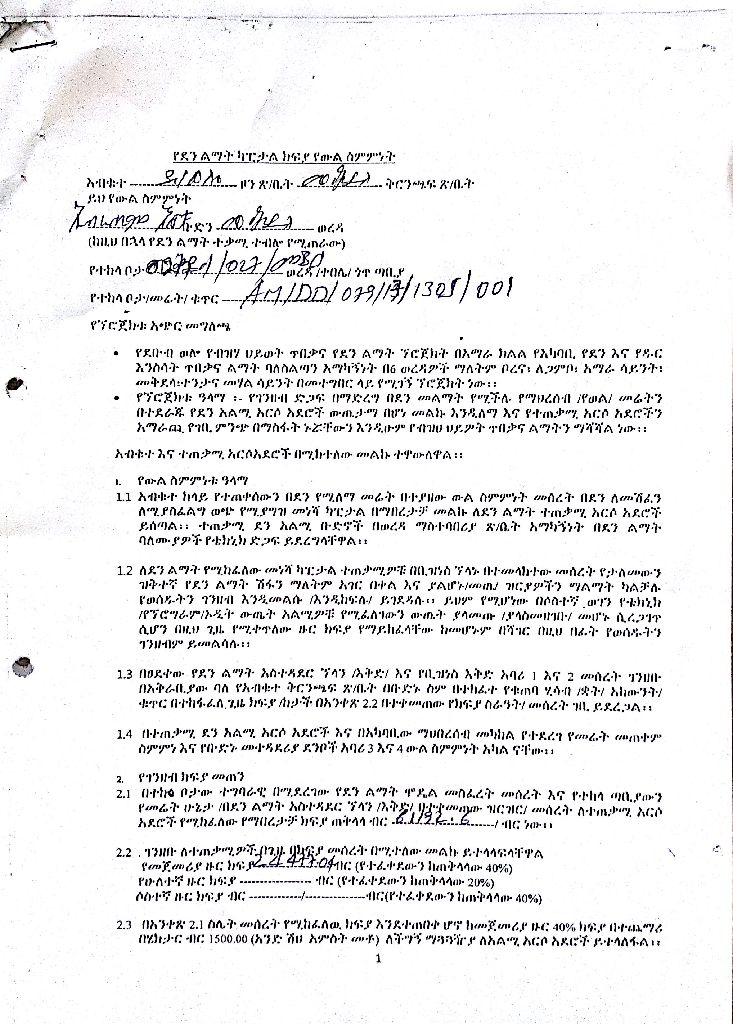 የደን ልማት ካፒታል ክፍያ የውል ስምምነት
አብቁተ ዞን ጽ/ቤት ቅርንጫፍ ጽ/ቤት
ይህ የውል ስምምነት
ቡድን ወረዳ
(ከዚህ በኋላ የደን ልማት ተቃሚ ተብሎ የሚጠራው)
የተከላ ቦታ ወረዳ /ቀበሌ/ ጎጥ ጣቢያ
የተከላ ቦታ/መሬት/ ቁጥር AM/DD/029/13/1305/001
የፕሮጀክቱ አጭር መግለጫ
• የደቡብ ወሎ የብዝሃ ህይወት ጥበቃና የደን ልማት ፕሮጀክት በአማራ ክልል የአካባቢ የደን እና የዱር
እንስሳት ጥበቃና ልማት ባለስልጣን አማካኝነት በ6 ወረዳዎች ማለትም ቦረና፣ ለጋምቦ፣ አማራ ሳይንት፣
መቅደላ፣ተንታና መሃል ሳይንት በመተግበር ላይ የሚገኝ ፕሮጀክት ነው፡፡
• የፕሮጀክቱ ዓላማ ፡- የገንዘብ ድጋፍ በማድረግ በደን መልማት የሚችሉ የማህረሰብ /የወል/ መሬትን
በተደራጁ የደን አልሚ አርሶ አደሮች ውጤታማ በሆነ መልኩ እንዲለማ እና የተጠቃሚ አርሶ አደሮችን
አማራጪ የገቢ ምንጭ በማስፋት ኑሯቸውን እንዲሁም የብዝሀ ህይዎት ጥበቃና ልማትን ማሻሻል ነው፡፡
አብቁተ እና ተጠቃሚ አርሶአደሮች በሚከተለው መልኩ ተዋውለዋል፡፡
1. የውል ስምምነቱ ዓላማ
1.1 አብቁተ ከላይ የተጠቀሰውን በደን የሚለማ መሬት በተያዘው ውል ስምምነት መሰረት በደን ለመሸፈን
ለሚያስፈልግ ወጭ የሚያግዝ መነሻ ካፒታል በማበረታቻ መልኩ ለደን ልማት ተጠቃሚ አርሶ አደሮች
ይሰጣል፡፡ ተጠቃሚ ደን አልሚ ቡድኖች በወረዳ ማስተባበሪያ ጽ/ቤት አማካኝነት በደን ልማት
ባለሙያዎች የቴክኒክ ድጋፍ ይደረግላቸዋል፡፡
1.2 ለደን ልማት የሚከፈለው መነሻ ካፒታል ተጠቃሚዎቹ በቢዝነስ ፕላኑ በተመላከተው መሰረት የታለመውን
ዝቅተኛ የደን ልማት ሽፋን ማለትም አገር በቀል እና ያልሆኑ/መጤ/ ዝርያዎችን ማልማት ካልቻሉ
የወሰዱትን ገንዘብ እንዲመልሱ /እንዲከፍሉ/ ይገደዳሉ፡፡ ይህም የሚሆነው በሶስተኛ ወገን የቴክኒክ
/የፕሮግራም/ኦዲት ውጤት አልሚዎቹ የሚፈለገውን ውጤት ያላመጡ /ያላስመዘገቡ/ መሆኑ ሲረጋገጥ
ሲሆን በዚህ ጊዜ የሚቀጥለው ዙር ክፍያ የማይከፈላቸው ከመሆኑም በሻገር በዚህ በፊት የወሰዱትን
ገንዘብም ይመልሳሉ፡፡
1.3 በፀደቀው የደን ልማት አስተዳደር ፕላን /እቅድ/ እና የቢዝነስ እቅድ አባሪ 1 እና 2 መሰረት ገንዘቡ
በአቅራቢያው ባለ የአብቁተ ቅርንጫፍ ጽ/ቤት በቡድኑ ስም በተከፈተ የቁጠባ ሂሳብ /ቋት/ አካውንት/
ቁጥር በተከፋፈለ ጊዜ ክፍያ /ከታች በአንቀጽ 2.2 በተቀመጠው የክፍያ ስራዓት/ መሰረት ገቢ ይደረጋል፡፡
1.4 በተጠቃሚ ደን አልሚ አርሶ አደሮች እና በአካባቢው ማህበረሰብ መካከል የተደረገ የመሬት መጠቀም
ስምምነ እና የቡድኑ መተዳደሪያ ደንቦች አባሪ 3 እና 4 ውል ስምምነት አካል ናቸው፡፡
2. የገንዘብ ክፍያ መጠን
2.1 በተከላ ቦታው ተግባራዊ በሚደረገው የደን ልማት ሞዴል መስፈረት መሰረት እና የተከላ ጣቢያውን
የመሬት ሁኔታ /በደን ልማት አስተዳደር ፕላን /እቅድ/ በተቀመጠው ዝርዝር/ መሰረት ለተጠቃሚ አርሶ
አደሮች የሚከፈለው የማበረታቻ ክፍያ ጠቅላላ ብር 61192.6 / ብር ነው፡፡
2.2 ገንዘቡ ለተጠቃሚዎች በጊዜ በክፍያ መሰረት በሚተለው መልኩ ይተላላፍላቸዋል
የመጀመሪያ ዙር ክፍያ 24477.04 ብር (የተፈቀደውን ከጠቅላላው 40%)
የሁለተኛ ዙር ክፍያ ---------------- ብር (የተፈቀደውን ከጠቅላላው 20%)
ሶስተኛ ዙር ክፍያ ብር -----------/---------------ብር(የተፈቀደውን ከጠቅላላው 40%)
2.3 በአንቀጽ 2.1 ስሌት መሰረት የሚከፈለው ክፍያ እንደተጠበቀ ሆኖ ከመጀመሪያ ዙር 40% ክፍያ በተጨማሪ
በሄክታር ብር 1500.00 (አንድ ሽህ አምስት መቶ) ለችግኝ ማጓጓዣያ ለአልሚ አርሶ አደሮች ይተላለፋል፡፡
1